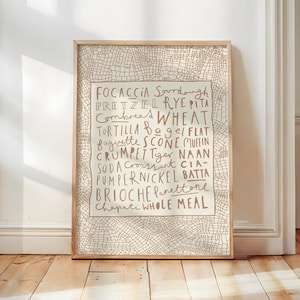 FOCACCIA Sourdough
PRETZEL RYE PITA
Cornbread WHEAT
TORTILLA Bagel FLAT
Baguette SCONE MUFFIN
CRUMPET Tiger NAAN
SODA Croissant CIA-
PUMPERNICKEL BATTA
BRIOCHE Panettone
Chapati WHOLE MEAL